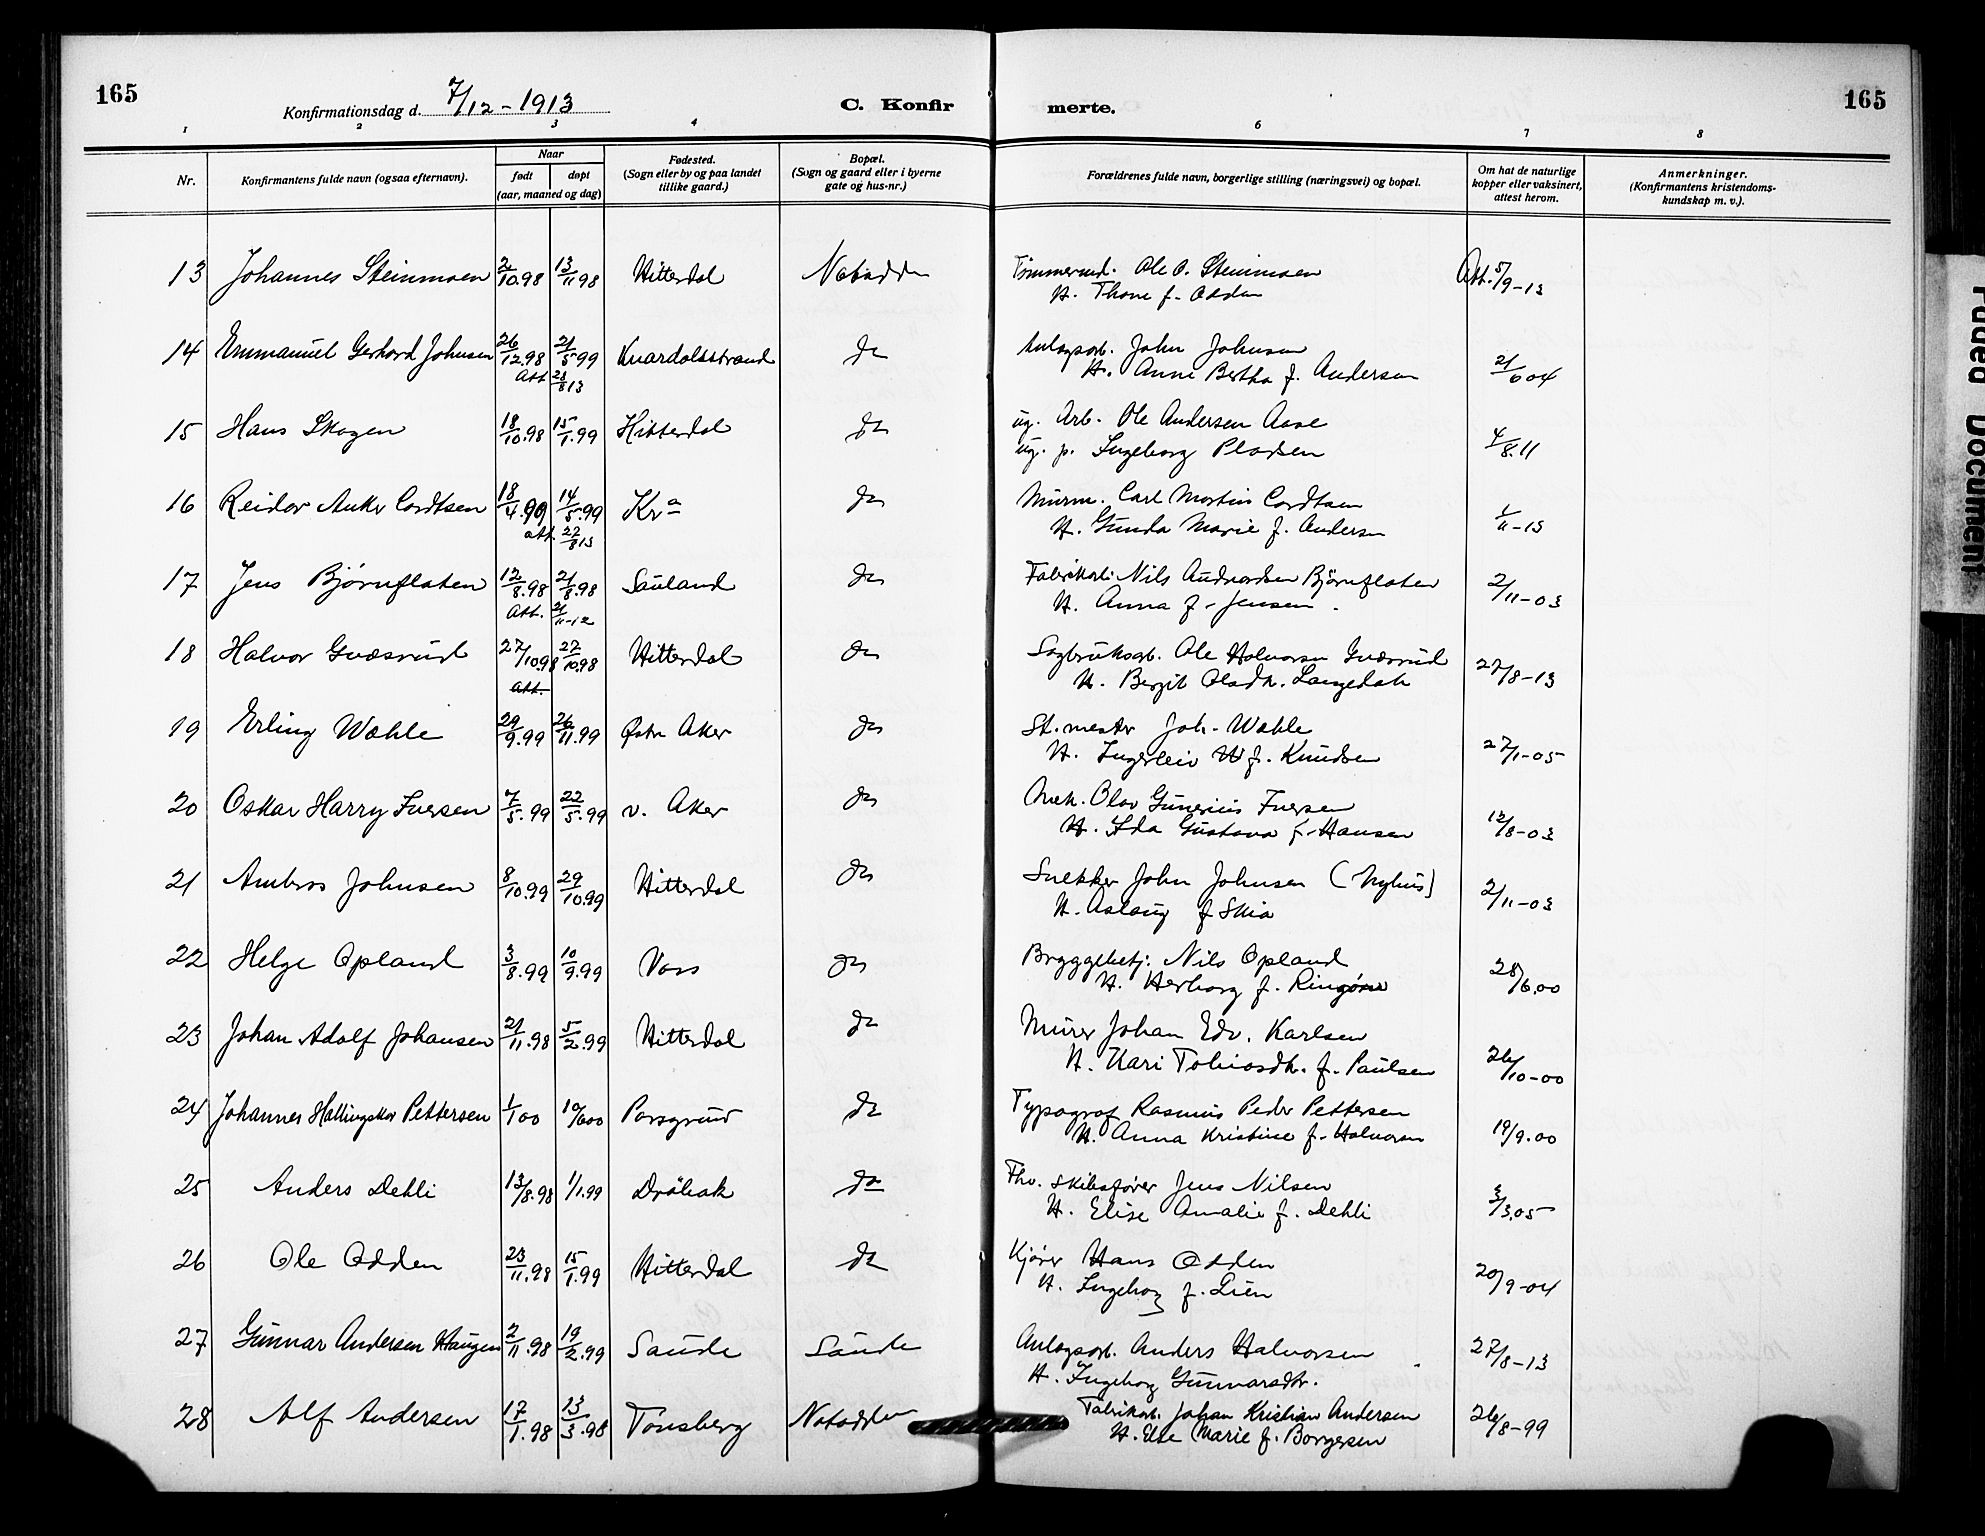 165
Konfirmationsdag d. 7/12 - 1913
C. Konfir
merte.
165
1 2 3 4 6 7 8
Nr.
Konfirmantens fulde navn (ogsaa efternavn).
Naar
født
døpt
(aar, maaned og dag)
Fødested.
(Sogn eller by og paa landet
tillike gaard.)
Bopæl.
(Sogn og gaard eller i byerne
gate og hus-nr.)
Forældrenes fulde navn, borgerlige stilling (næringsvei) og bopæl.
Om hat de naturlige
kopper eller vaksinert,
attest herom.
Anmerkninger.
(Konfirmantens kristendoms-
kundskap m. v.).
13 Johannes Steinmoen 2/10.98 13/11 98 Hitterdal Notodden Tømmermd. Ole O. Steinmoen Att. 5/9-13
H. Thone f. Odden
14 Emmanuel Gerhard Johnsen 26/12.98 21/5 99 Knardalsstrand do Anlagsarb. John Johnsen
Att 28/8 13 H. Anne Bertha f. Andersen 21/6 04
15 Hans Skogen 18/10.98 15/1.99 Hitterdal do ug. Arb. Ole Andersen Aase
ug. p. Ingeborg Pladsen 4/8.11
16 Reidar Anker Cordtsen 18/4.99 14/5.99 Kra do Murm. Carl Martin Cordtsen
att. 22/8 13 H. Gunda Marie f. Andersen 1/11-13
17 Jens Bjørnflaten 12/8.98 21/8.98 Sauland do Fabrikarb. Nils Andvordsen Bjørnflaten 2/11-03
Att. 21/11-12 H. Anna f. Jensen.
18 Halvor Gvæsrud 27/10.98 27/10.98 Hitterdal do Sagbruksarb. Ole Halvorsen Gvæsrud 27/8-13
Att. H. Bergit Olsdtr. Langedak
19 Erling Wæhle 29/9.99 26/11.99 Østre Aker do St.mester Joh. Wæhle
H. Ingerleiv W f. Knudsen 27/1-05
20 Oskar Harry Iversen 7/5.99 22/5.99 v. Aker do Mek. Olav Gunerius Iversen
H. Ida Gustava f. Hansen 12/8-03
21 Ambros Johnsen 8/10.99 29/10.99 Hitterdal do Snekker John Johnsen (Nyhus) 2/11-03
H. Aslaug f Skia
22 Helge Opland 3/8.99 10/9.99 Voss do Bryggebetj. Nils Opland 28/6.00
H. Herborg f. Ringøne
23 Johan Adolf Johansen 21/11.98 5/2.99 Hitterdal do Murer Johan Edv. Karlsen
H. Kari Tobiasdtr. f. Paulsen 26/10-00
24 Johannes Hallingskar Pettersen 1/1 00 10/6 00 Porsgrund do Typograf Rasmus Peder Pettersen
H. Anna Kristine f. Halvorsen 19/9.00
25 Anders Dehli 13/8.98 1/1.99 Drøbak do Fhv. skibsfører Jens Nilsen
H. Elise Amalie f. Dehli 3/3.05
26 Ole Odden 23/11.98 15/1.99 Hitterdal do Kjører Hans Odden
H. Ingeborg f. Lien 20/9-04
27 Gunnar Andersen Haugen 2/11.98 19/2.99 Saude Saude Anlagsarb. Anders Halvorsen 27/8-13
H. Ingeborg Gunnarsdtr.
28 Alf Andersen 17/1.98 13/3.98 Tønsberg Notodden Fabrikarb. Johan Kristian Andersen 26/8-99
H. Else Marie f. Borgersen
Faded Document